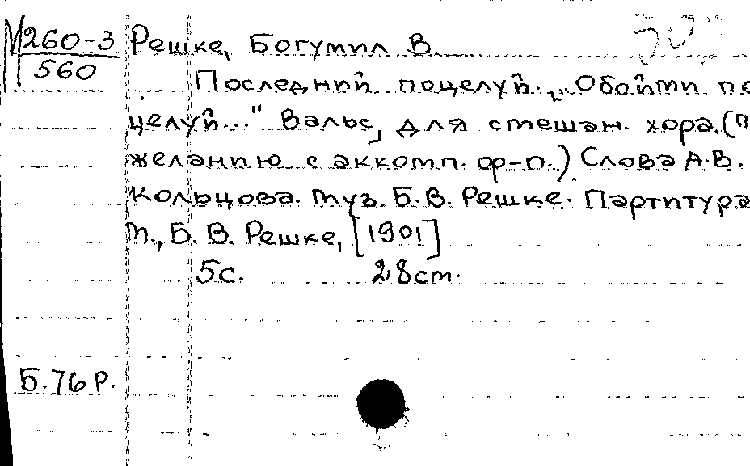 М 260-3
560
Решке, Богумил В.
Последний поцелуй. „Обойми по
целуй..." Вальс, для смешан. хора. (п
желанию с аккомп. ф-п.) Слова А.В.
Кольцова. Муз. Б. В. Решке. Партитура
М., Б. В. Решке, [1901]
5с. 28см.
Б.76 Р.